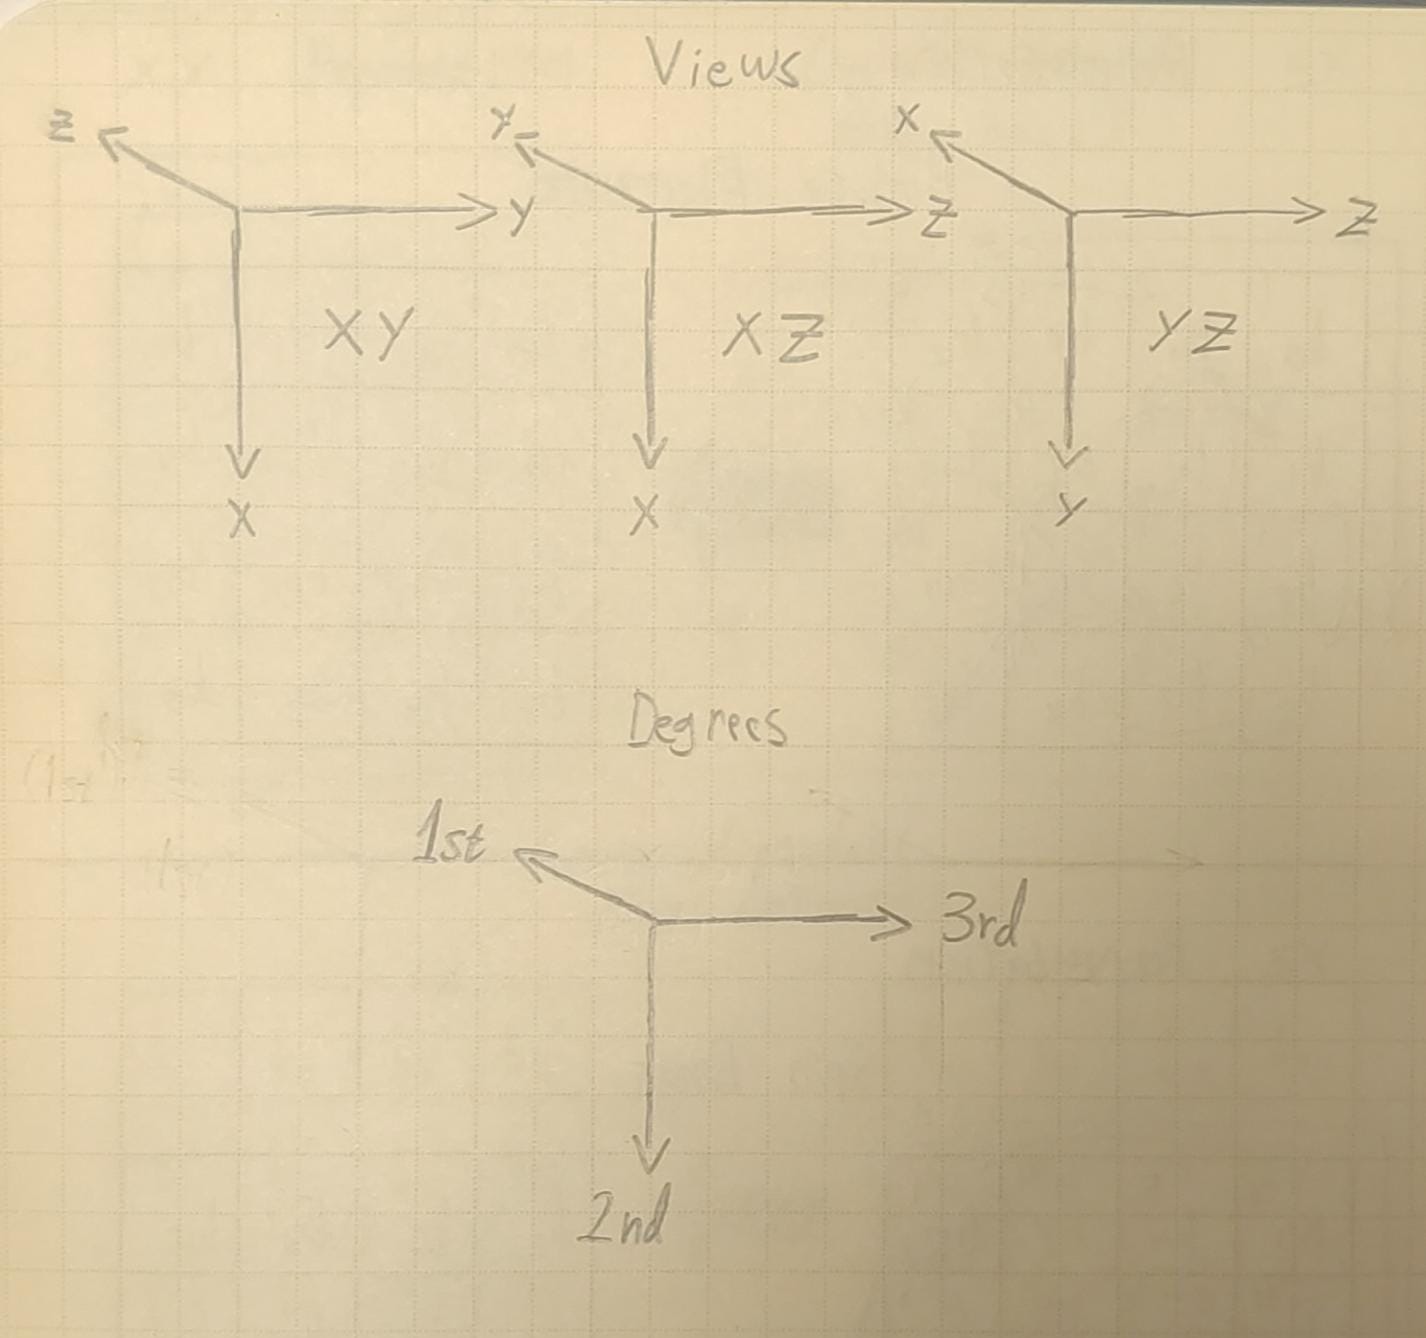 Views
Z Y X
Y Z X
X Z Y
XY XZ YZ
Degrees
1st
3rd
2nd